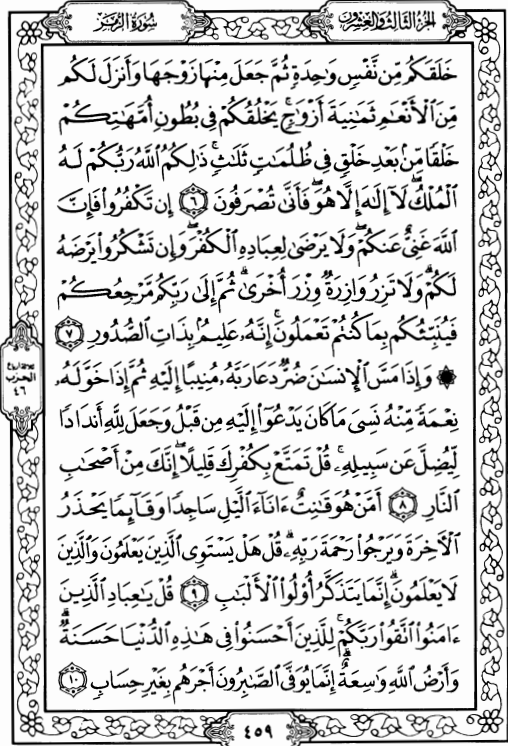 سُورَةُ الزُّمَرِ
الجُزْءُ الثَّالِثُ وَالعِشْرُونَ
خَلَقَكُم مِّن نَّفْسٍ وَٰحِدَةٍ ثُمَّ جَعَلَ مِنْهَا زَوْجَهَا وَأَنزَلَ لَكُم
مِّنَ ٱلْأَنْعَٰمِ ثَمَٰنِيَةَ أَزْوَٰجٍ ۚ يَخْلُقُكُمْ فِى بُطُونِ أُمَّهَٰتِكُمْ
خَلْقًا مِّنۢ بَعْدِ خَلْقٍ فِى ظُلُمَٰتٍ ثَلَٰثٍ ۚ ذَٰلِكُمُ ٱللَّهُ رَبُّكُمْ لَهُ
ٱلْمُلْكُ ۖ لَآ إِلَٰهَ إِلَّا هُوَ ۖ فَأَنَّىٰ تُصْرَفُونَ ٦ إِن تَكْفُرُوا۟ فَإِنَّ
ٱللَّهَ غَنِىٌّ عَنكُمْ ۖ وَلَا يَرْضَىٰ لِعِبَادِهِ ٱلْكُفْرَ ۖ وَإِن تَشْكُرُوا۟ يَرْضَهُ
لَكُمْ ۗ وَلَا تَزِرُ وَازِرَةٌ وِزْرَ أُخْرَىٰ ۗ ثُمَّ إِلَىٰ رَبِّكُم مَّرْجِعُكُمْ
فَيُنَبِّئُكُم بِمَا كُنتُمْ تَعْمَلُونَ ۚ إِنَّهُۥ عَلِيمٌۢ بِذَاتِ ٱلصُّدُورِ ٧
۞ وَإِذَا مَسَّ ٱلْإِنسَٰنَ ضُرٌّ دَعَا رَبَّهُۥ مُنِيبًا إِلَيْهِ ثُمَّ إِذَا خَوَّلَهُۥ
نِعْمَةً مِّنْهُ نَسِىَ مَا كَانَ يَدْعُوٓا۟ إِلَيْهِ مِن قَبْلُ وَجَعَلَ لِلَّهِ أَندَادًا
لِّيُضِلَّ عَن سَبِيلِهِۦ ۚ قُلْ تَمَتَّعْ بِكُفْرِكَ قَلِيلًا ۖ إِنَّكَ مِنْ أَصْحَٰبِ
ٱلنَّارِ ٨ أَمَّنْ هُوَ قَٰنِتٌ ءَانَآءَ ٱلَّيْلِ سَاجِدًا وَقَآئِمًا يَحْذَرُ
ٱلْءَاخِرَةَ وَيَرْجُوا۟ رَحْمَةَ رَبِّهِۦ ۗ قُلْ هَلْ يَسْتَوِى ٱلَّذِينَ يَعْلَمُونَ وَٱلَّذِينَ
لَا يَعْلَمُونَ ۗ إِنَّمَا يَتَذَكَّرُ أُو۟لُوا۟ ٱلْأَلْبَٰبِ ٩ قُلْ يَٰعِبَادِ ٱلَّذِينَ
ءَامَنُوا۟ ٱتَّقُوا۟ رَبَّكُمْ ۚ لِلَّذِينَ أَحْسَنُوا۟ فِى هَٰذِهِ ٱلدُّنْيَا حَسَنَةٌ ۗ
وَأَرْضُ ٱللَّهِ وَٰسِعَةٌ ۗ إِنَّمَا يُوَفَّى ٱلصَّٰبِرُونَ أَجْرَهُم بِغَيْرِ حِسَابٍ ١٠
ثلاثة أرباع
الحزب
٤٦
٤٥٩